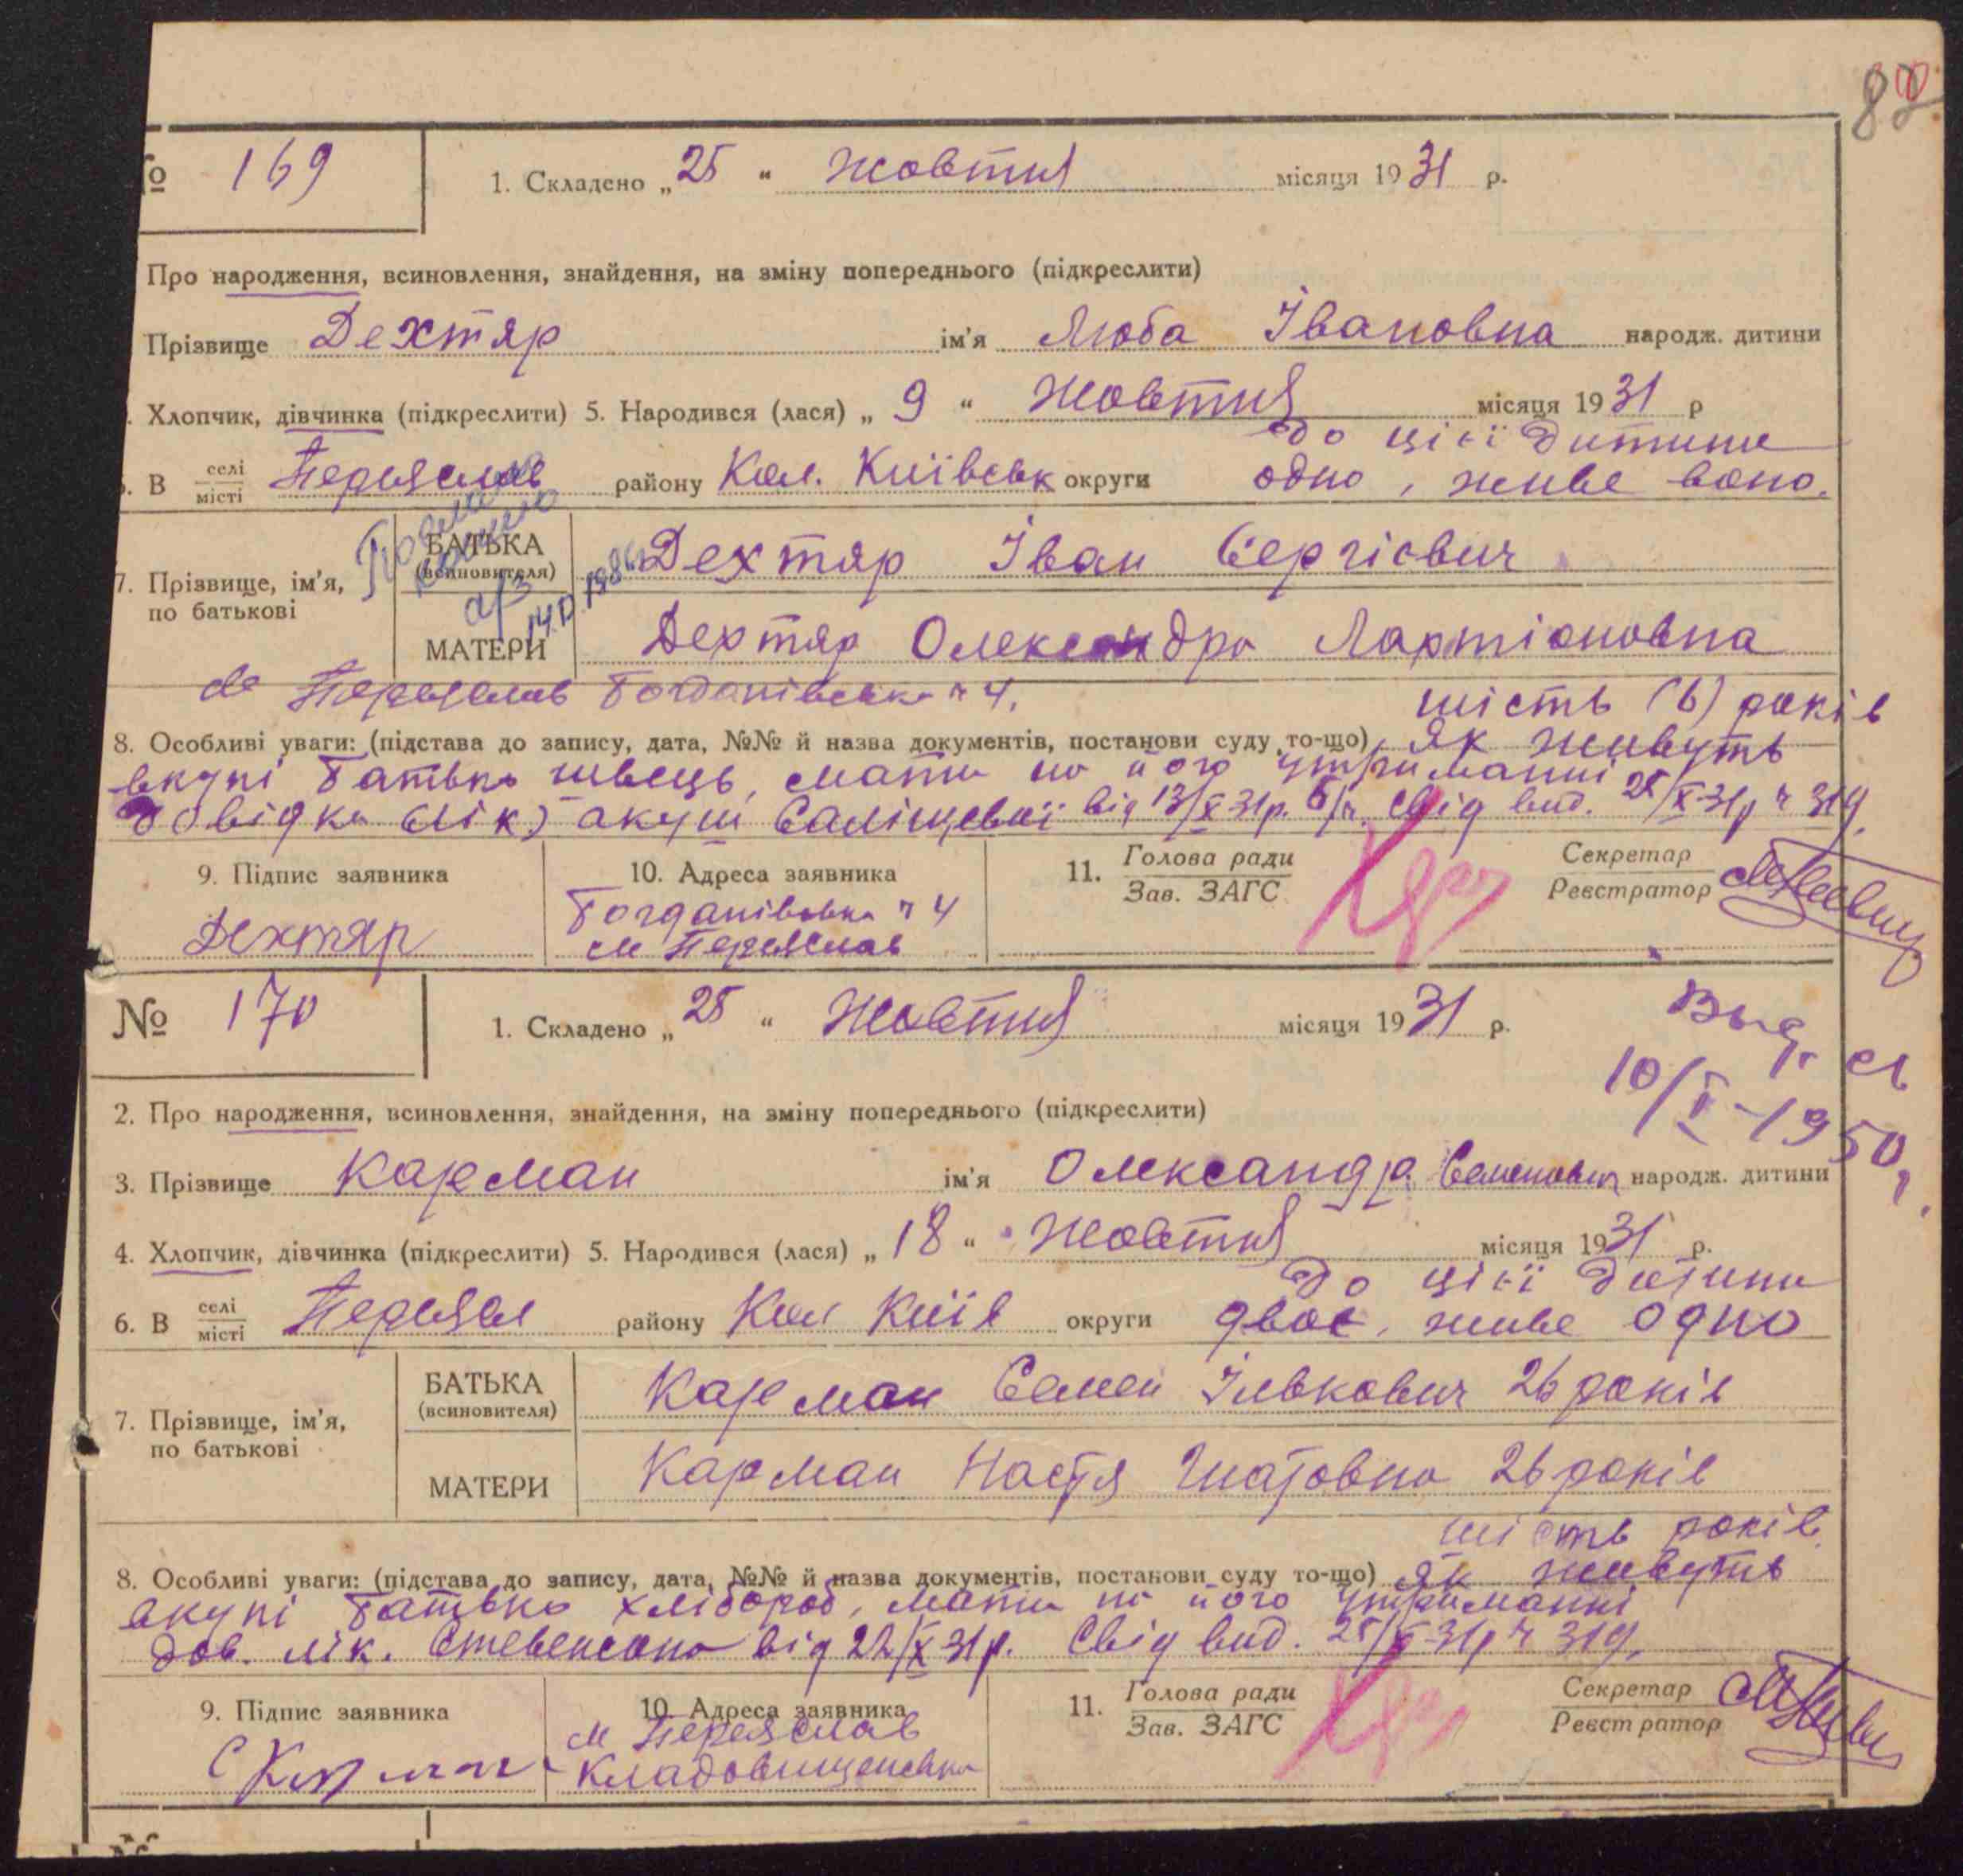 88
№ 169
1. Складено „ 25 “ жовтня місяця 1931 р.
Про народження, всиновлення, знайдення, на зміну попереднього (підкреслити)
Прізвище Дехтяр ім'я Люба Івановна народж. дитини
Хлопчик, дівчинка (підкреслити) 5. Народився (лася) „ 9 “ жовтня місяця 1931 р
до ціеї дитини
. В селі/місті Переяслав району Кол. Київськ округи одно, живе воно.
7. Прізвище, ім'я, по батькові
БАТЬКА (всиновителя) Дехтяр Іван Сергієвич
МАТЕРИ Дехтяр Олександра Лартіоновна
Переяслав Богданівська ч 4. шість (6) років
8. Особливі уваги: (підстава до запису, дата, №№ й назва документів, постанови суду то-що) як живуть
вкупі батько швець, мати на його утриманні
довідка лік. акуш від 13/X 31р. Свід вид. 25/X 31р ч 319.
9. Підпис заявника
10. Адреса заявника
11. Голова ради
Зав. ЗАГС
Секретар
Реєстратор
Дехтяр
Богданівська ч 4
м Переяслав
№ 170
1. Складено „ 25 “ жовтня місяця 1931 р.
Выд. св
10/V-1950
2. Про народження, всиновлення, знайдення, на зміну попереднього (підкреслити)
3. Прізвище Карман ім'я Олександр Семенович народж. дитини
4. Хлопчик, дівчинка (підкреслити) 5. Народився (лася) „ 18 “ жовтня місяця 1931 р.
до ціеї дитини
6. В селі/місті Переясл району Кол Київ округи двоє, живе одно
7. Прізвище, ім'я, по батькові
БАТЬКА (всиновителя) Карман Семен Ількович 26 років
МАТЕРИ Карман Настя Гнатовна 26 років
шість років.
8. Особливі уваги: (підстава до запису, дата, №№ й назва документів, постанови суду то-що) як живуть
вкупі батько хлібороб, мати на його утриманні
дов. лік. Стевенсона від 22/X 31р. Свід вид. 25/X 31р ч 319.
9. Підпис заявника
10. Адреса заявника
11. Голова ради
Зав. ЗАГС
Секретар
Реєстратор
С Карман
м Переяслав
Кладовищенська